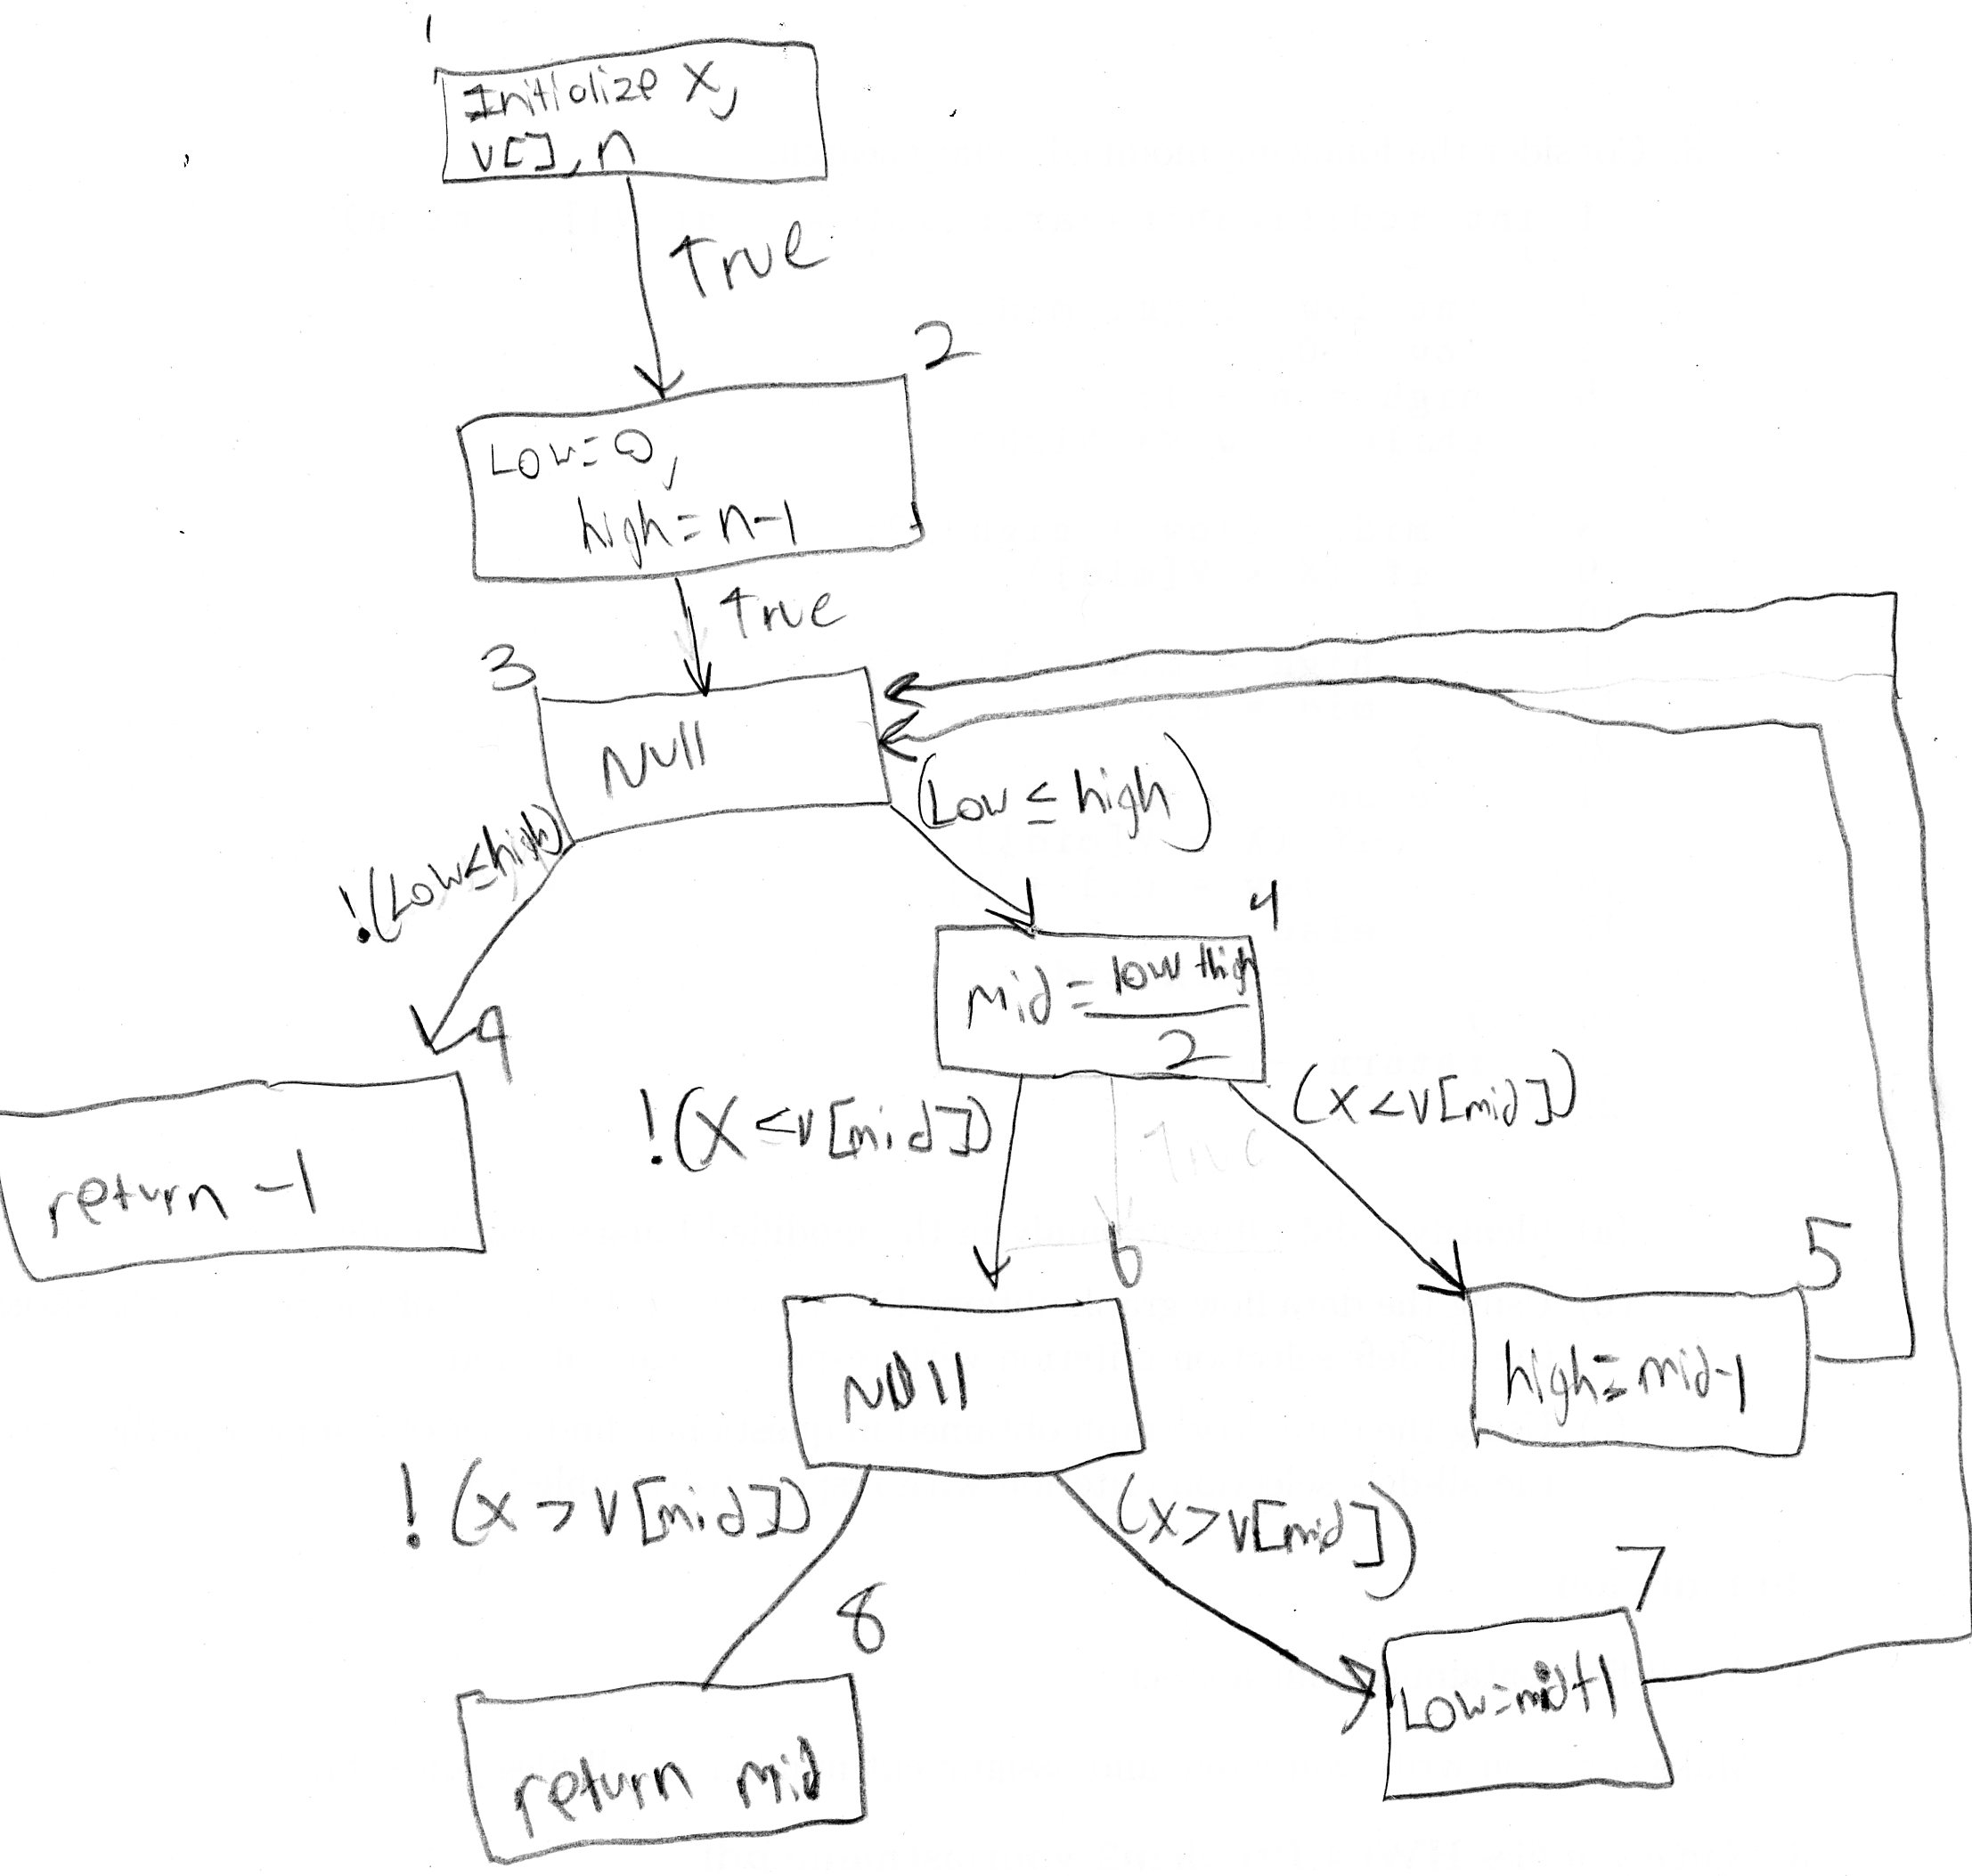 1
Initialize X,
V[], n
True
2
Low=0,
high=n-1
True
3
Null
(Low≤high)
!(Low≤high)
4
mid=low+high
2
9
return -1
!(X<V[mid])
(X<V[mid])
6
5
Null
high=mid-1
!(X>V[mid])
(X>V[mid])
7
8
Low=mid+1
return mid